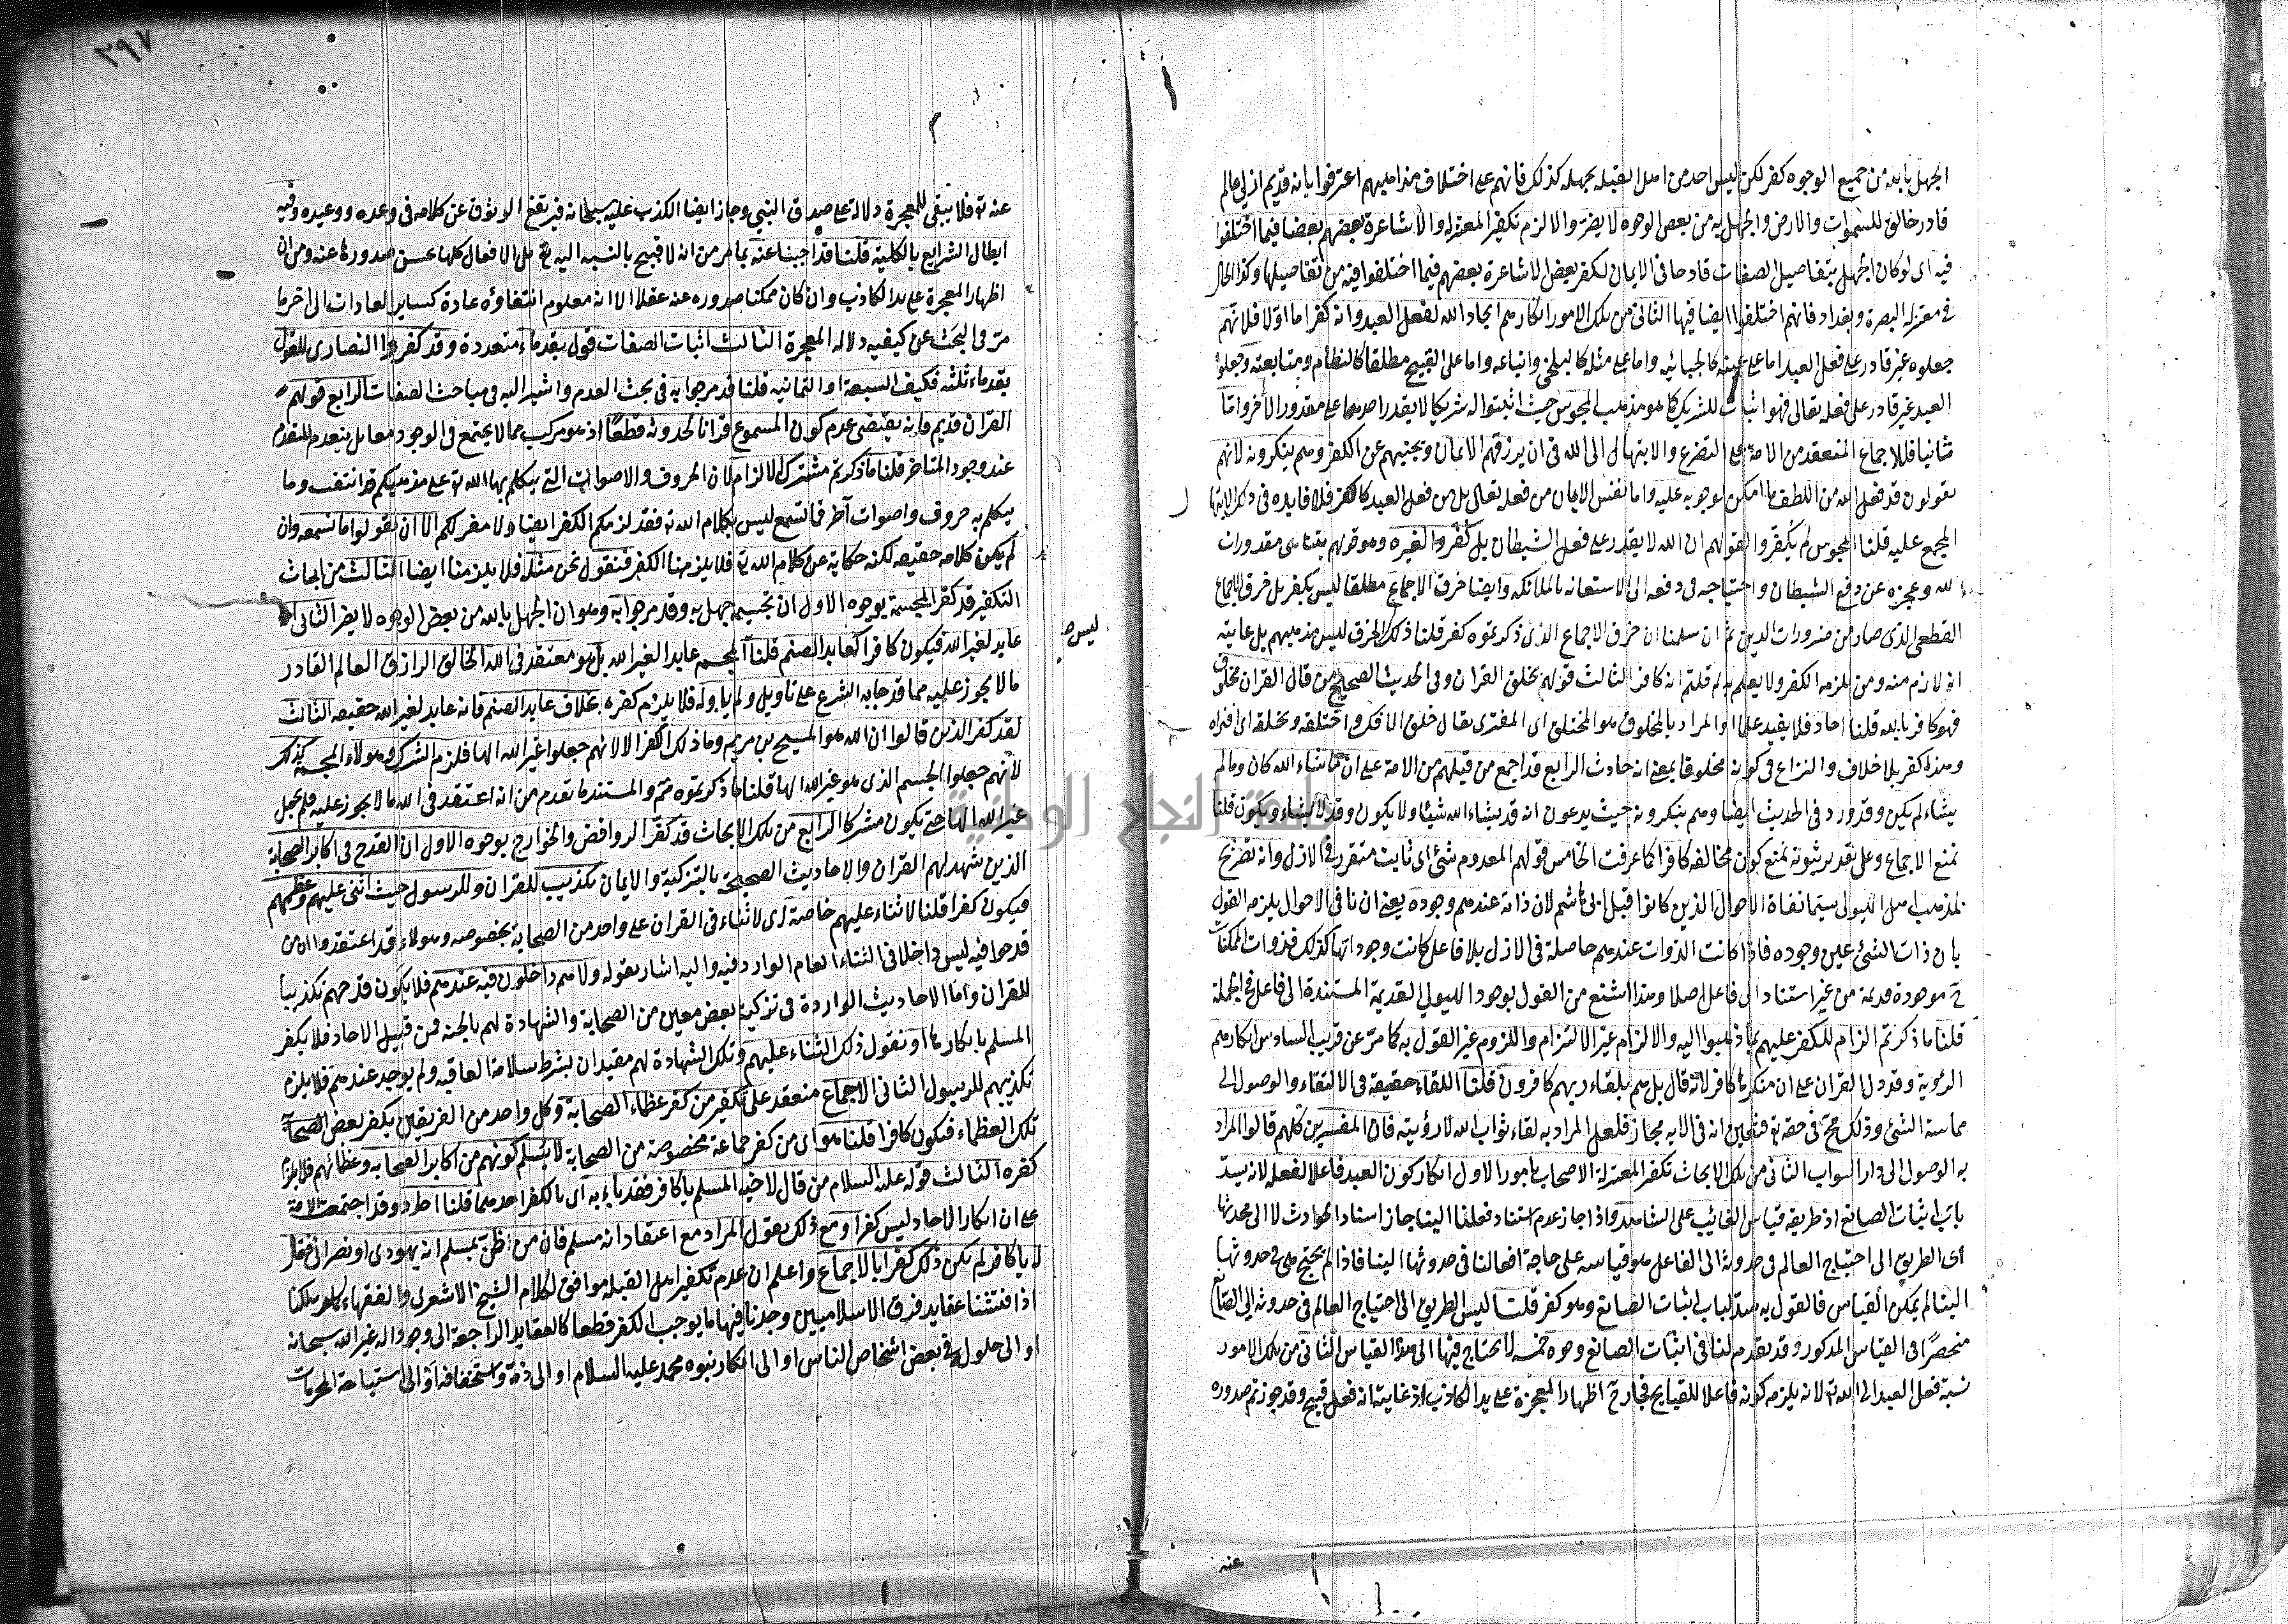 الجهل بالله من جميع الوجوه كفر لكن ليس احد من اهل القبله بجهله كذلك فانهم على اختلاف مذاهبهم اعترفوا بانه قديم ازلي عالم
قادر خالق للسموات والارض والجهل به من بعض الوجوه لا يضر والا لزم تكفير المعتزله والاشاعرة بعضهم بعضا فيما اختلفوا
فيه اى لو كان الجهل بتفاصيل الصفات قادحا فى الايمان لكفر بعض الاشاعرة بعضهم فيما اختلفوا فيه من تفاصيلها وكذا الحال
فى معتزلة البصرة وبغداد فانهم اختلفوا ايضا فيها الثانى من تلك الامور انكارهم ايجاد الله لفعل العبد وانه كفر اما اولا فلانهم
جعلوه غير قادر على فعل العبد اما على عينه كالجبائيه واما على مثله كالبلخى واتباعه واما على القبيح مطلقا كالنظام ومتابعيه وجعلوا
العبد غير قادر على فعله تعالى فهو اثبات للشريك كما هو مذهب المجوس حيث اثبتوا له شريكا لا يقدر احدهما على مقدور الآخر واما
ثانيا فللاجماع المنعقد من الامة على التضرع والابتهال الى الله فى ان يرزقهم الايمان ويجنبهم عن الكفر وهم ينكرونه لانهم
يقولون قد فعل الله من اللطف ما امكن لوجوبه عليه واما نفس الايمان من فعله تعالى بل من فعل العبد كالكفر فلا فايده فى ذلك الابتهال
المجمع عليه قلنا المجوس لم يكفروا لقولهم ان الله لا يقدر على فعل الشيطان بل كفروا لغيره وهو قولهم بتناهى مقدورات
الله وعجزه عن دفع الشيطان واحتياجه فى دفعه الى الاستعانه بالملائكه وايضا خرق الاجماع مطلقا ليس بكفر بل خرق الاجماع
القطعى الذى صار من ضرورات الدين ثم ان سلمنا ان خرق الاجماع الذى ذكرتموه كفر قلنا ذلك الخرق ليس مذهبهم بل غايته
انه لازم منه ومن يلزمه الكفر ولا يعلم به لم قلتم انه كافر الثالث قولهم بخلق القران وفى الحديث الصحيح من قال القران مخلوق
فهو كافر بالله قلنا احاد فلا يفيد علما او المراد بالمخلوق هو المختلق اى المفترى يقال خلق الافك واختلقه وتخلقه اى افتراه
وهذا كفر بلا خلاف والنزاع فى كونه مخلوقا بمعنى انه حادث الرابع قد اجمع من قبلهم من الامة على ان ما شاء الله كان وما لم
يشاء لم يكن وقد ورد فى الحديث ايضا وهم ينكرونه حيث يدعون انه قد يشاء الله شيئا ولا يكون وقد لا يشاء ويكون قلنا
نمنع الاجماع وعلى تقدير ثبوته نمنع كون مخالفه كافرا كما عرفت الخامس قولهم المعدوم شئ اى ثابت متقرر فى الازل وانه تصريح
بمذهب اهل الهيولى سيما نفاة الاحوال الذين كانوا قبل ابى هاشم لان ذاته عندهم وجوده يعنى ان نافى الاحوال يلزمه القول
بان ذات الشئ عين وجوده فاذا كانت الذوات عندهم حاصلة فى الازل بلا فاعل كانت وجوداتها كذلك فذوات الممكنات
ح موجودة قديمة من غير استناد الى فاعل اصلا وهذا اشنع من القول بوجود الهيولى القديمة المستندة الى فاعل فى الجملة
قلنا ما ذكرتم الزام للكفر عليهم بما ذهبوا اليه والالزام غير الالتزام واللزوم غير القول به كما مر عن قريب السادس انكارهم
الرؤية وقد دل القران على ان منكرها كافر لانه قال بل هم بلقاء ربهم كافرون قلنا اللقاء حقيقة فى الالتقاء والوصول الى
مماسة الشئ وذلك مح فى حقه تع فتعين انه فى الايه مجاز فلعل المراد به لقاء ثواب الله لا رؤيته فان المفسرين كلهم قالوا المراد
به الوصول الى دار الثواب الثانى من تلك الابحاث تكفير المعتزلة الاصحاب بامور الاول انكار كون العبد فاعلا لفعله لانه يسد
باب اثبات الصانع اذ طريقه قياس الغائب على الشاهد واذا جاز عدم استناد فعلنا الينا جاز اسناد الحوادث لا الى محدثها
اى الطريق الى احتياج العالم فى حدوثه الى الفاعل هو قياسه على حاجة افعالنا فى حدوثها الينا فاذا لم يحتج هى فى حدوثها
الينا لم يمكن القياس فالقول به سد لباب اثبات الصانع وهو كفر قلنا ليس الطريق الى احتياج العالم فى حدوثه الى الصانع
منحصرا فى القياس المذكور وقد تقدم لنا فى اثبات الصانع وجوه خمسة لا يحتاج فيها الى هذا القياس الثانى من تلك الامور
نسبة فعل العبد الى الله تع لانه يلزمه كونه فاعلا للقبايح فجاز ح اظهار المعجزة على يد الكاذب اذ غايته انه فعل قبيح وقد جوزتم صدوره
عنه
٣٩٧
عنه تع فلا يبقى للمعجزة دلالة على صدق النبى وجاز ايضا الكذب عليه سبحانه فيرتفع الوثوق عن كلامه فى وعده ووعيده وفيه
ابطال الشرايع بالكلية قلنا قد اجبنا عنه بما مر من انه لا قبيح بالنسبه اليه تع بل الافعال كلها يحسن صدورها عنه ومن ان
اظهار المعجزة على يد الكاذب وان كان ممكنا صدوره عنه عقلا الا انه معلوم انتفاؤه عادة كساير العادات الى اخر ما
مر فى البحث عن كيفيه دلاله المعجزة الثالث اثبات الصفات قول بقدماء متعددة وقد كفروا النصارى للقول
بقدماء ثلثه فكيف السبعة او الثمانيه قلنا قد مر جوابه فى بحث القدم واشير اليه فى مباحث الصفات الرابع قولهم
القران قديم فانه يقتضى عدم كون المسموع قرانا لحدوثه قطعا اذ هو مركب مما لا يجتمع فى الوجود معا بل ينعدم المتقدم
عند وجود المتاخر قلنا ما ذكرتم مشترك الالزام لان الحروف والاصوات التى يتكلم بها الله تع على مذهبكم قد انتفت وما
يتكلم به حروف واصوات اخر فما نسمع ليس بكلام الله تع فقد لزمكم الكفر ايضا ولا مفر لكم الا ان تقولوا ما نسمعه وان
لم يكن كلامه حقيقه لكنه حكاية عن كلام الله تع فلا يلزمنا الكفر فنقول نحن مثله فلا يلزمنا ايضا الثالث من ابحاث
التكفير قد كفر المجسمة بوجوه الاول ان تجسيمه جهل به وقد مر جوابه وهو ان الجهل بالله من بعض الوجوه لا يضر الثانى انه
ليس ص
عابد لغير الله فيكون كافرا كعابد الصنم قلنا المجسمه عابدا لغير الله بل هو معتقد فى الله الخالق الرازق العالم القادر
ما لا يجوز عليه مما قد جاء به الشرع على تاويل ولم ياوله فلا يلزم كفره بخلاف عابد الصنم فانه عابد لغير الله حقيقه الثالث
لقد كفر الذين قالوا ان الله هو المسيح بن مريم وما ذلك الكفر الا لانهم جعلوا غير الله الها فلزم الشرك وهولاء المجسمة كذلك
لانهم جعلوا الجسم الذى هو غير الله الها قلنا ما ذكرتموه مم والمستند ما تقدم من انه اعتقد فى الله ما لا يجوز عليه فلم يجعل
غير الله الها حتى يكون مشركا الرابع من تلك الابحاث قد كفر الروافض والخوارج بوجوه الاول ان القدح فى اكابر الصحابة
الذين شهد لهم القران والاحاديث الصحيحة بالتزكية والايمان تكذيب للقران وللرسول حيث اثنى عليهم وعظمهم
فيكون كفرا قلنا لا ثناء عليهم خاصة اى لا ثناء فى القران على واحد من الصحابة بخصوصه وهولاء قد اعتقدوا ان من
قدحوا فيه ليس داخلا فى الثناء العام الوارد فيه واليه اشار بقوله ولا هم داخلون فيه عندهم فلا يكون قدحهم تكذيبا
للقران واما الاحاديث الواردة فى تزكية بعض معين من الصحابة والشهادة لهم بالجنة فمن قبيل الاحاد فلا يكفر
المسلم بانكارها او نقول ذلك الثناء عليهم وتلك الشهادة لهم مقيدان بشرط سلامة العاقبه ولم يوجد عندهم فلا يلزم
تكذيبهم للرسول الثانى الاجماع منعقد على تكفير من كفر عظماء الصحابة وكل واحد من الفريقين يكفر بعض الصحابة
تلك العظماء فيكون كافرا قلنا هو اى من كفر جماعة مخصوصة من الصحابة لا يسلم كونهم من اكابر الصحابه وعظمائهم فلا يلزم
كفره الثالث قوله عليه السلام من قال لاخيه المسلم يا كافر فقد باء به اى بالكفر احدهما قلنا احاد وقد اجتمعت الامة
على ان انكار الاحاد ليس كفرا ومع ذلك نقول المراد مع اعتقاد انه مسلم فان من ظن بمسلم انه يهودى او نصرانى فقال
له يا كافر لم يكن ذلك كفرا بالاجماع واعلم ان عدم تكفير اهل القبله موافق لكلام الشيخ الاشعرى والفقهاء كما مر لكنا
اذا فتشنا عقايد فرق الاسلاميين وجدنا فيها ما يوجب الكفر قطعا كالعقايد الراجعة الى وجود اله غير الله سبحانه
او الى حلوله فى بعض اشخاص الناس او الى انكار نبوه محمد عليه السلام او الى ذمه واستخفافه او الى استباحة المحرمات